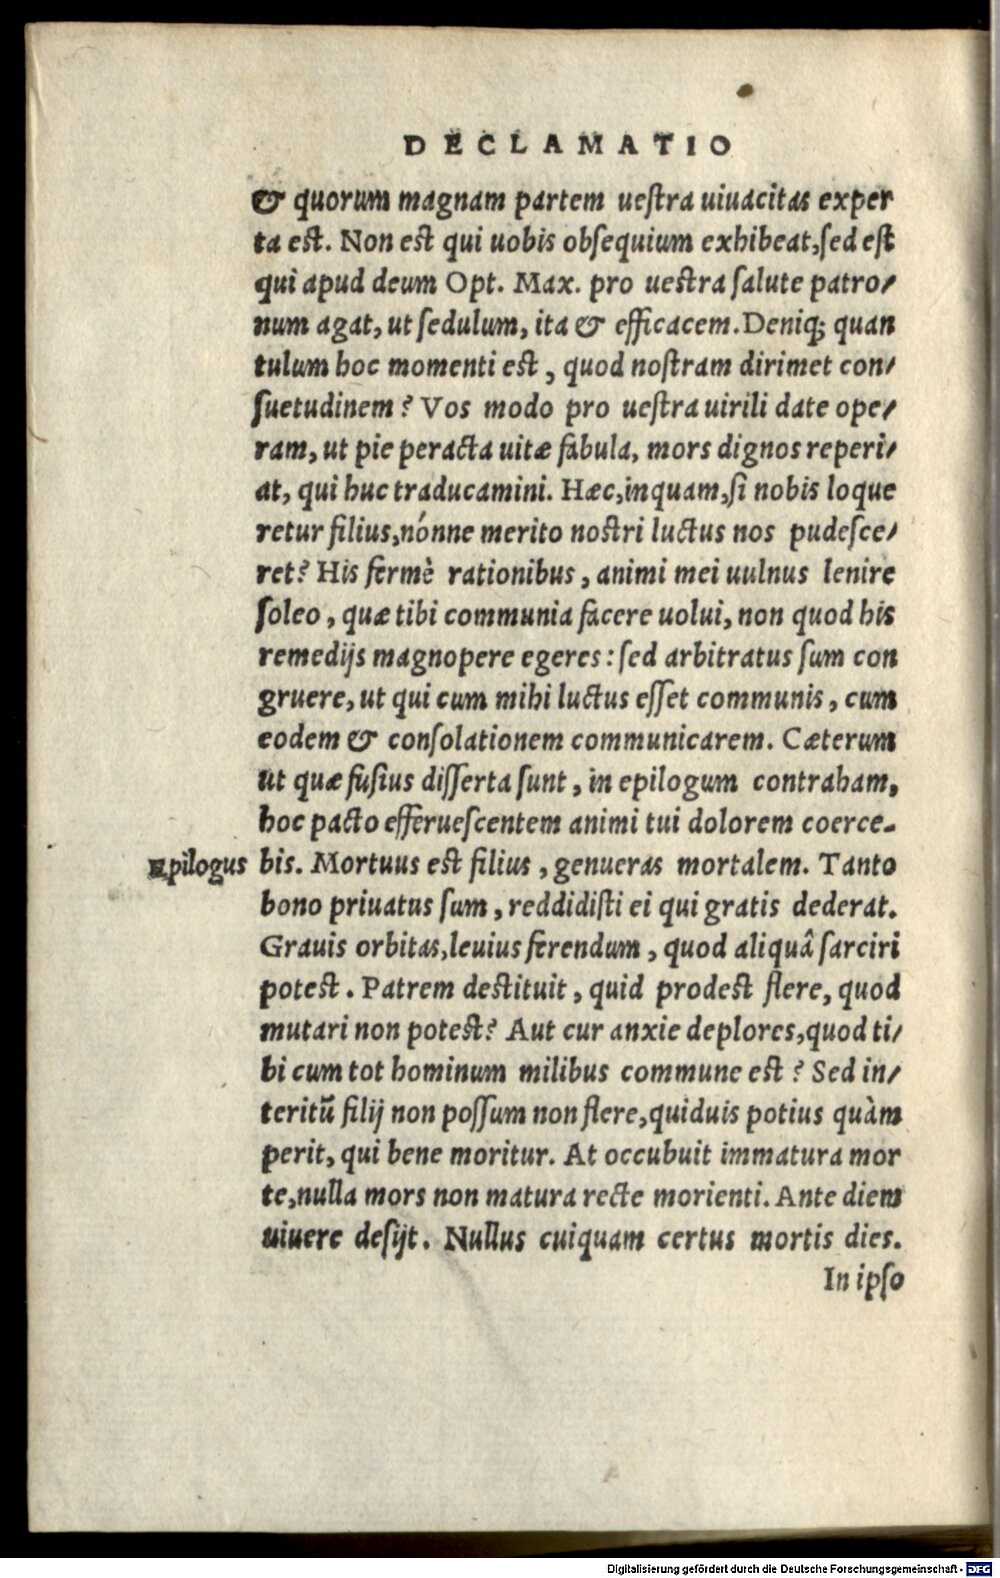 DECLAMATIO
& quorum magnam partem ueſtra uiuacitas exper
ta est. Non est qui uobis obſequium exhibeat,ſed eſt
qui apud deum Opt. Max. pro uestra ſalute patro/
num agat, ut ſedulum, ita & efficacem. Deniq; quan
tulum hoc momenti est, quod noſtram dirimet con/
ſuetudinem? Vos modo pro ueſtra uirili date ope/
ram, ut pie peracta uitæ fabula, mors dignos reperi/
at, qui huc traducamini. Hæc, inquam, ſi nobis loque
retur filius, nónne merito nostri luctus nos pudeſce/
ret? His fermè rationibus, animi mei uulnus lenire
ſoleo, quæ tibi communia facere uolui, non quod his
remedijs magnopere egeres: ſed arbitratus ſum con
gruere, ut qui cum mihi luctus eſſet communis, cum
eodem & conſolationem communicarem. Cæterum
ut quæ fuſius diſſerta ſunt, in epilogum contraham,
hoc pacto efferueſcentem animi tui dolorem coerce-
Epilogus bis. Mortuus est filius, genueras mortalem. Tanto
bono priuatus ſum, reddidiſti ei qui gratis dederat.
Grauis orbitas, leuius ferendum, quod aliquâ ſarciri
potest. Patrem destituit, quid prodest flere, quod
mutari non potest? Aut cur anxie deplores, quod ti/
bi cum tot hominum milibus commune est? Sed in/
teritū filij non poſſum non flere, quiduis potius quàm
perit, qui bene moritur. At occubuit immatura mor
te, nulla mors non matura recte morienti. Ante diem
uiuere deſijt. Nullus cuiquam certus mortis dies.
In ipſo
Digitalisierung gefördert durch die Deutsche Forschungsgemeinschaft - DFG